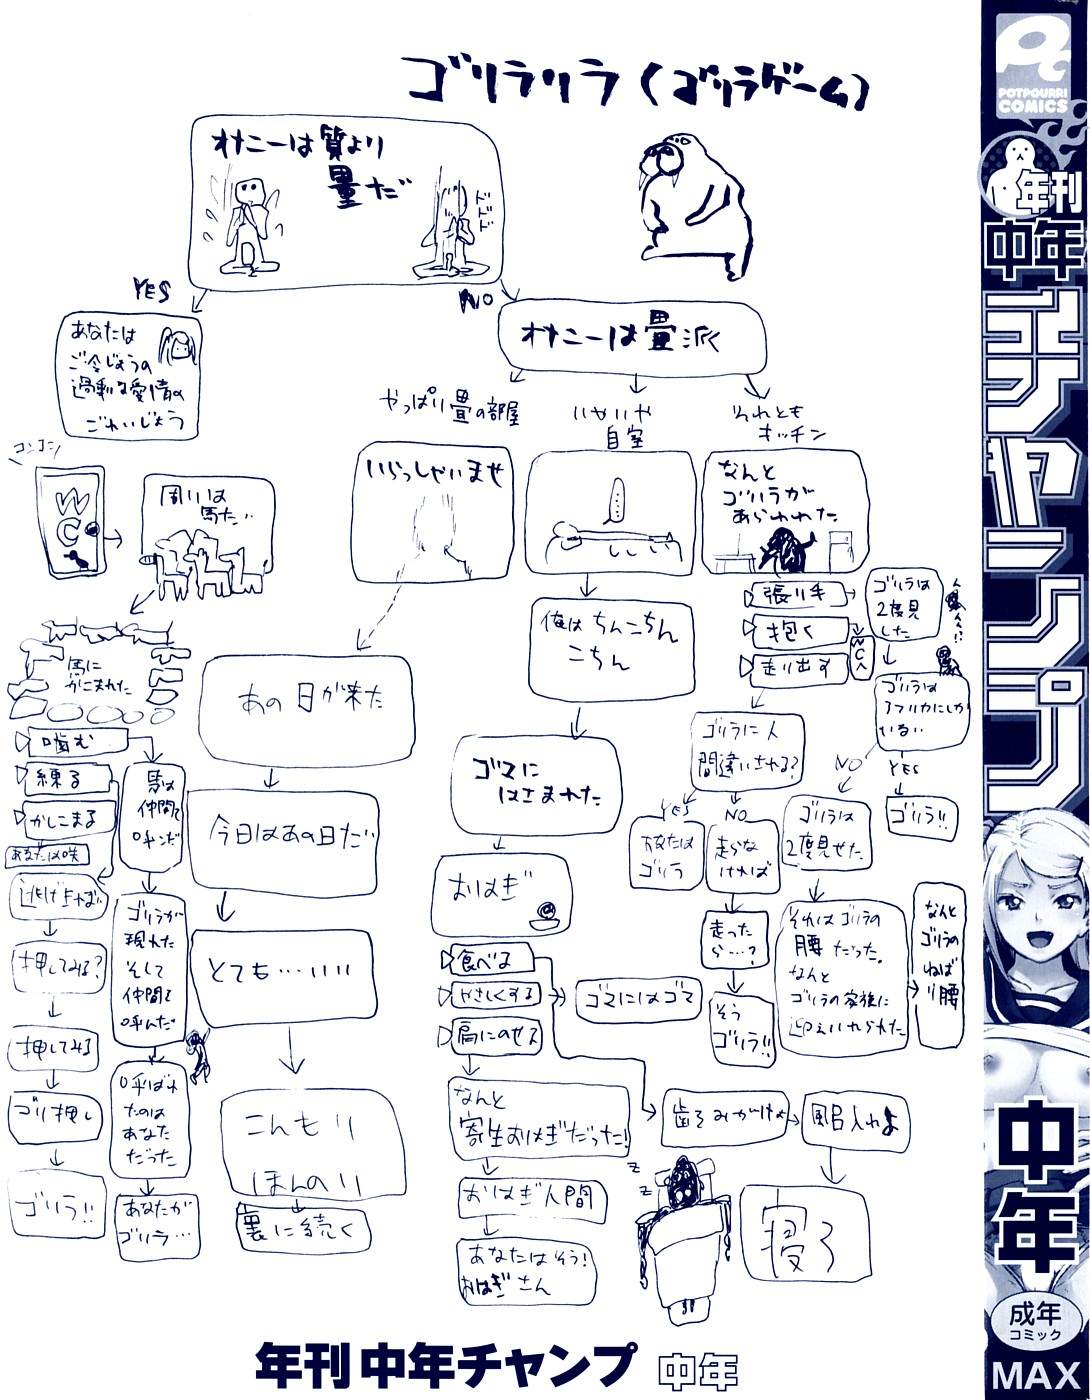 ゴリラリラ(ゴリラゲーム)
POTPOURRI
COMICS
オナニーは質より
量だ
YES
NO
あなたは
ご令じょうの
過剰な愛情の
ごれいじょう
オナニーは畳派
やっぱり畳の部屋
いやいや
自室
それとも
キッチン
コンコン
WC
周りは
馬だ…
いらっしゃいませ
なんと
ゴリラが
あらわれた
張り手
抱く
走り出す
WCへ
ゴリラは
2度見
した
ゴリラは
アフリカにしか
いない
NO
YES
ゴリラ!!
ゴリラは
2度見せた
それはゴリラの
腰だった。
なんと
ゴリラの家族に
迎えいれられた
なんと
ゴリラの
ねば
り腰
ゴリラに人
間違いされる?
YES
NO
あなたは
ゴリラ
走らな
ければ
走った
ら…?
そう
ゴリラ!!
俺はちんこちん
こちん
ゴマに
はさまれた
おはぎ
食べる
やさしくする
肩にのせる
ゴマにはゴマ
なんと
寄生おはぎだった!
おはぎ人間
あなたはそう!
おはぎさん
歯をみがけよ
風呂入れよ
寝ろ
z
z
あの日が来た
今日はあの日だ…
とても…いい
こんもり
ほんのり
裏に続く
馬に
かこまれた
噛む
練る
かしこまる
あなたは咲
逃げれば…
押してみる?
押してみる
ゴリ押し
ゴリラ!!
馬は
仲間を
呼んだ
ゴリラが
現れた
そして
仲間を
呼んだ
呼ばれ
たのは
あなた
だった
あなたが
ゴリラ…
年刊 中年チャンプ 中年
年刊
中年
チャンプ
中年
成年
コミック
MAX